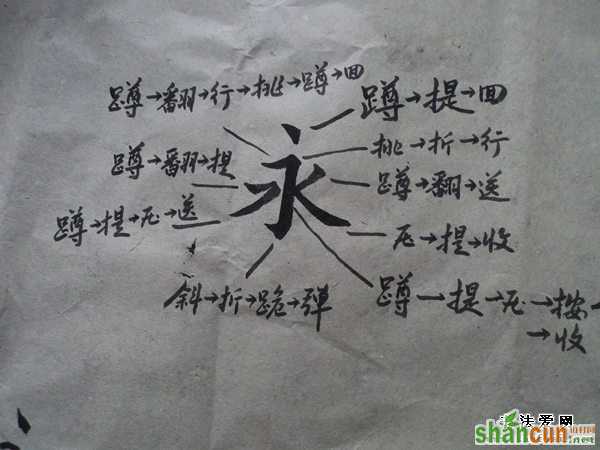 蹲→翻→行→挑→蹲→回
蹲→提→回
挑→折→行
蹲→翻→提
蹲→翻→送
蹲→提→压→送
永
压→提→收
斜→折→跪→弹
蹲→提→压→按→
→收
法爱网
shancun
.net